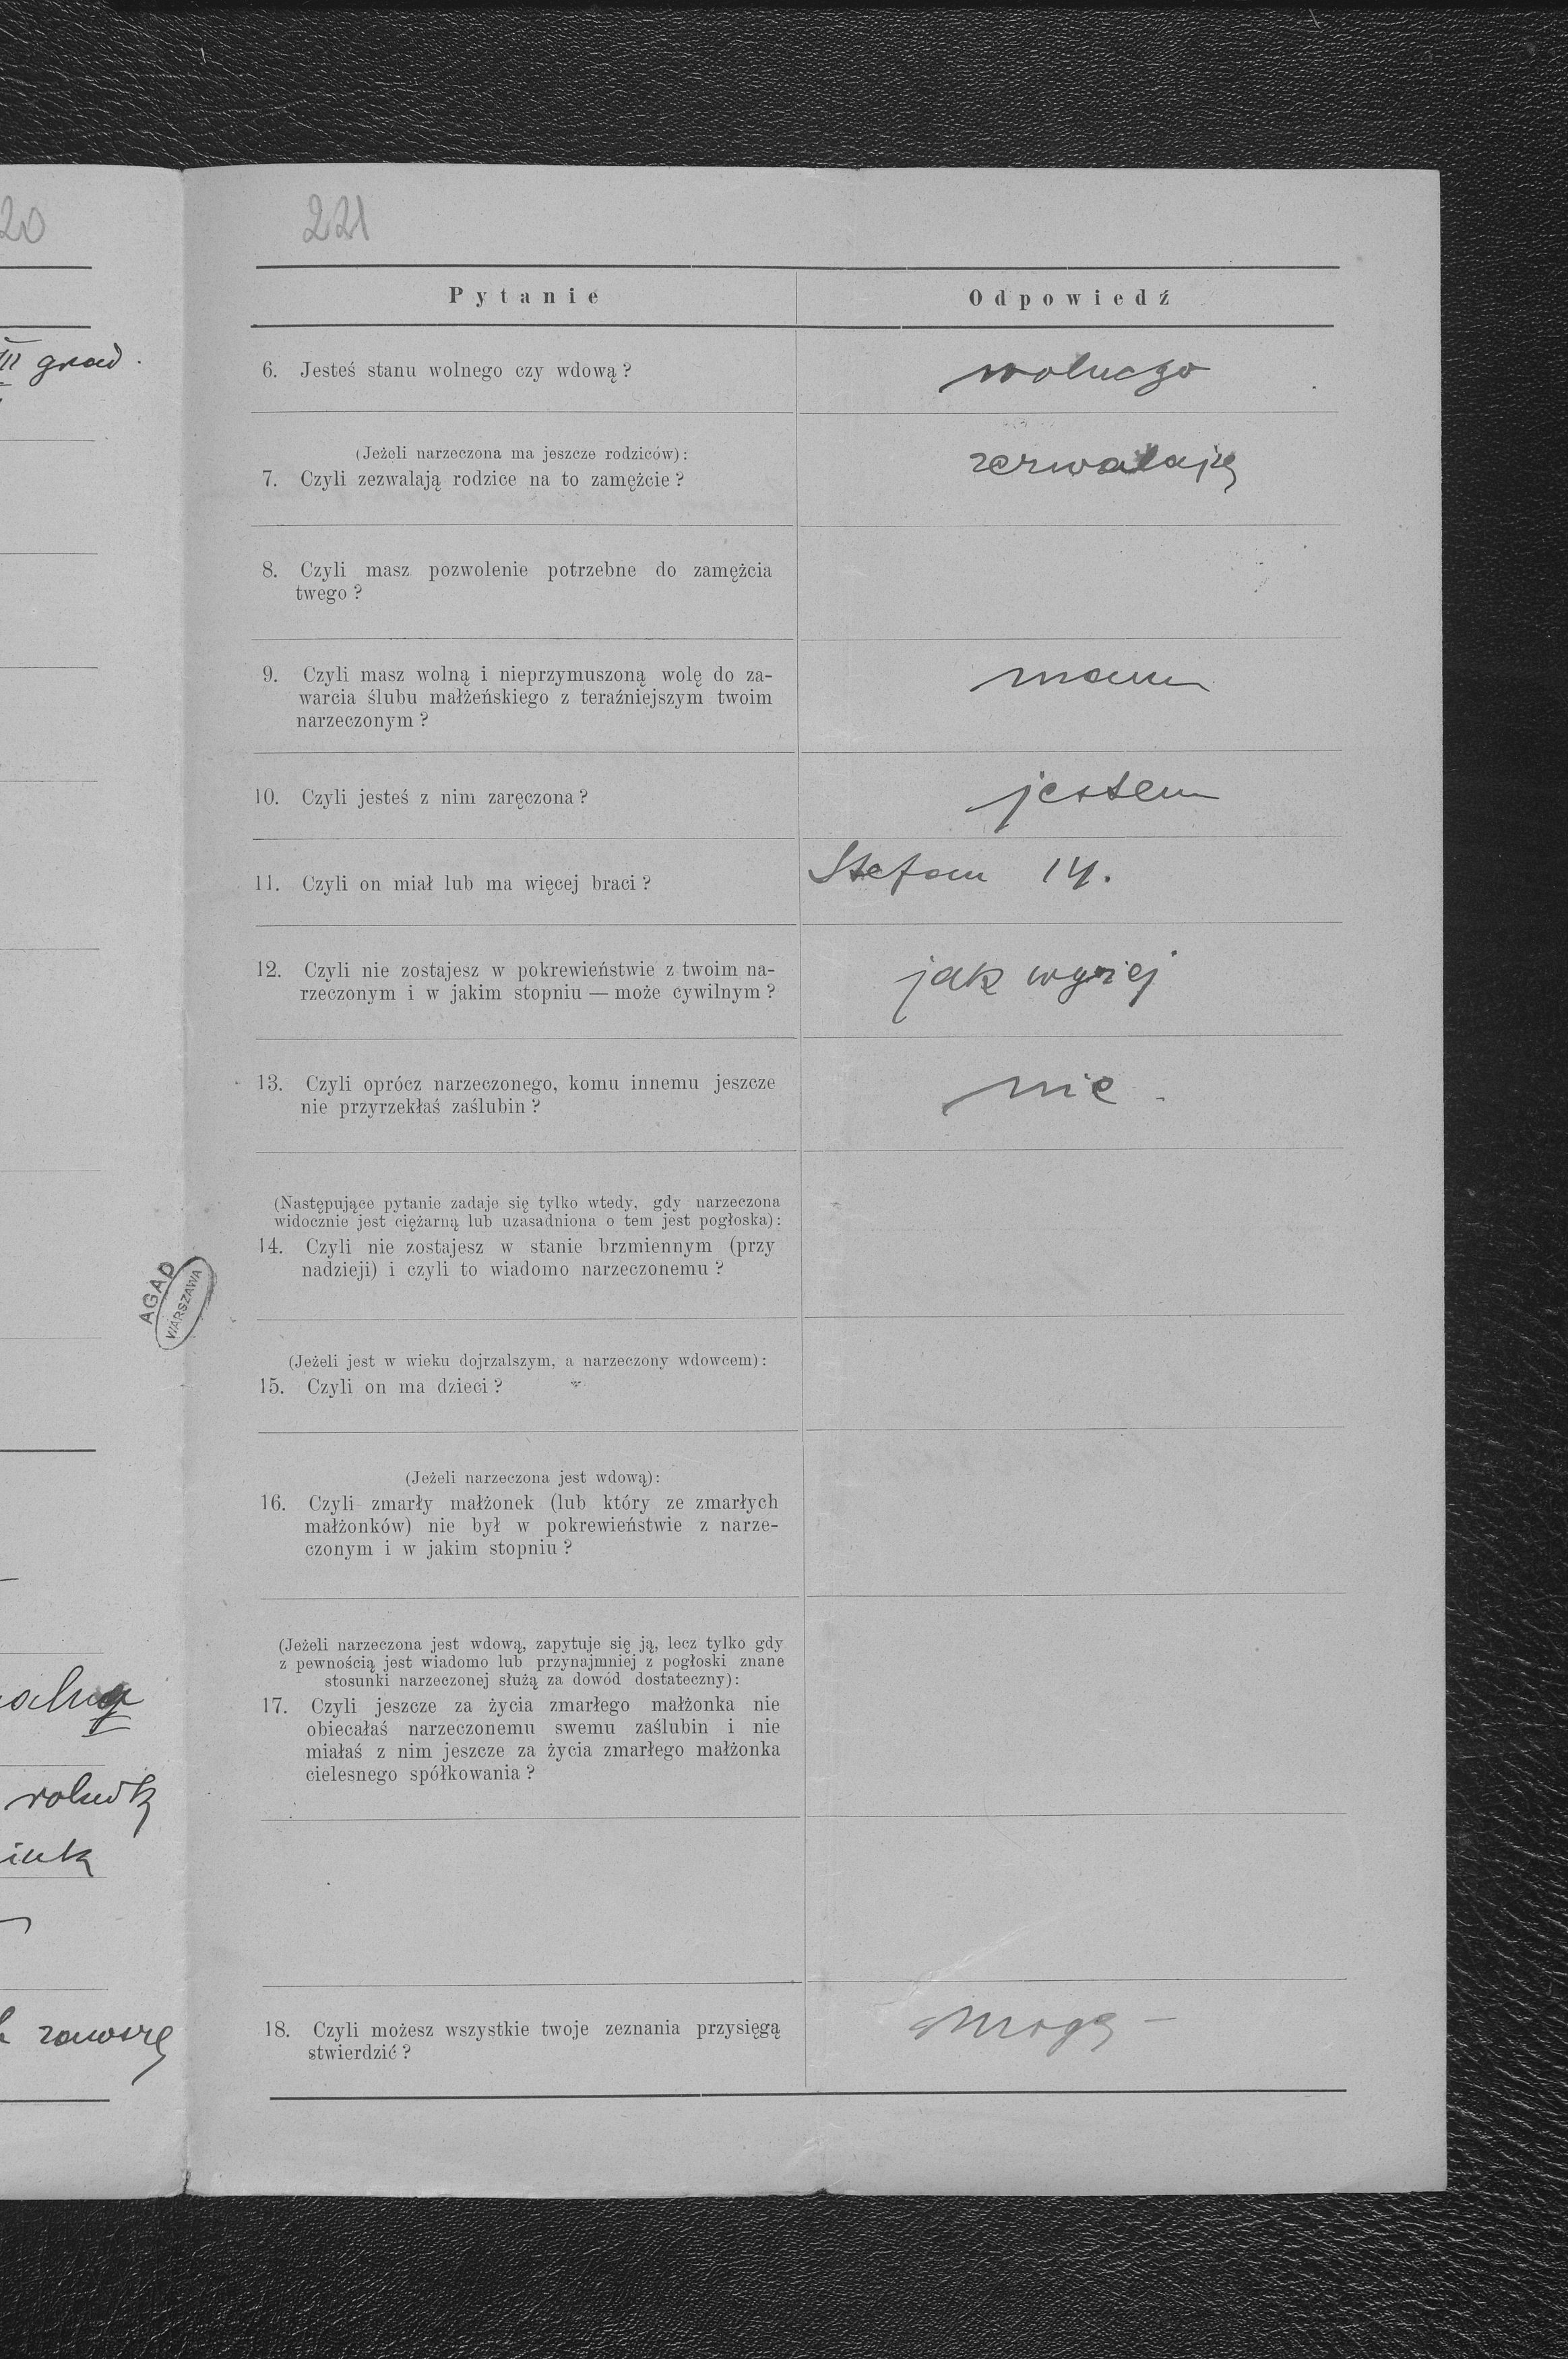 20
II grad.
rolnik
zawsze
AGAD
WARSZAWA
221
Pytanie
Odpowiedź
6. Jesteś stanu wolnego czy wdową?
wolnego
(Jeżeli narzeczona ma jeszcze rodziców):
7. Czyli zezwalają rodzice na to zamężcie?
zezwalają
8. Czyli masz pozwolenie potrzebne do zamężcia
twego?
9. Czyli masz wolną i nieprzymuszoną wolę do za-
warcia ślubu małżeńskiego z teraźniejszym twoim
narzeczonym?
mam
10. Czyli jesteś z nim zaręczona?
jestem
11. Czyli on miał lub ma więcej braci?
Stefan 14.
12. Czyli nie zostajesz w pokrewieństwie z twoim na-
rzeczonym i w jakim stopniu — może cywilnym?
jak wyżej
13. Czyli oprócz narzeczonego, komu innemu jeszcze
nie przyrzekłaś zaślubin?
nie
(Następujące pytanie zadaje się tylko wtedy, gdy narzeczona
widocznie jest ciężarną lub uzasadniona o tem jest pogłoska):
14. Czyli nie zostajesz w stanie brzmiennym (przy
nadzieji) i czyli to wiadomo narzeczonemu?
(Jeżeli jest w wieku dojrzalszym, a narzeczony wdowcem):
15. Czyli on ma dzieci?
(Jeżeli narzeczona jest wdową):
16. Czyli zmarły małżonek (lub który ze zmarłych
małżonków) nie był w pokrewieństwie z narze-
czonym i w jakim stopniu?
(Jeżeli narzeczona jest wdową, zapytuje się ją, lecz tylko gdy
z pewnością jest wiadomo lub przynajmniej z pogłoski znane
stosunki narzeczonej służą za dowód dostateczny):
17. Czyli jeszcze za życia zmarłego małżonka nie
obiecałaś narzeczonemu swemu zaślubin i nie
miałaś z nim jeszcze za życia zmarłego małżonka
cielesnego spółkowania?
18. Czyli możesz wszystkie twoje zeznania przysięgą
stwierdzić?
mogę —